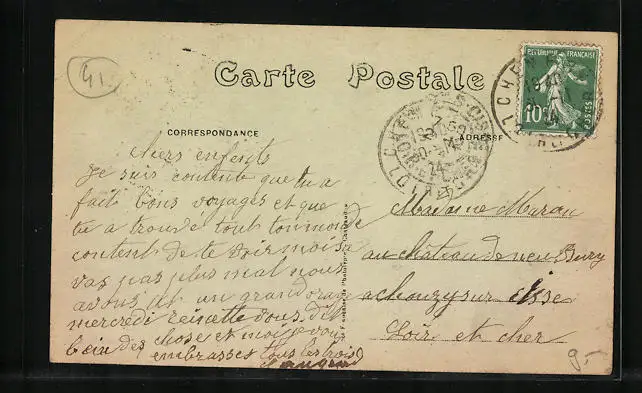 41.
Carte Postale
CORRESPONDANCE
ADRESSE
REPUBLIQUE FRANÇAISE
10c
POSTES
chers enfents
Je suis contente que tu a
fait bons voyages et que
tu a trouvé tout ton monde
content de te voir moi se
vas pas plus mal nous
avons ut un grand orage
mercredi reicette vous. dit
bein des chose et moi je vous
embrasses tous les trois
Madame Muran
au château de neu Bury
a chouzy sur cisse
Loir et cher
9-